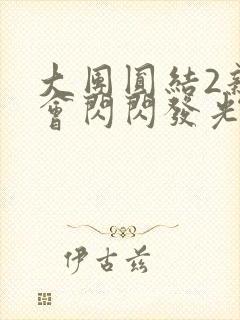 大團圓結2新
會閃閃發光
伊古茲